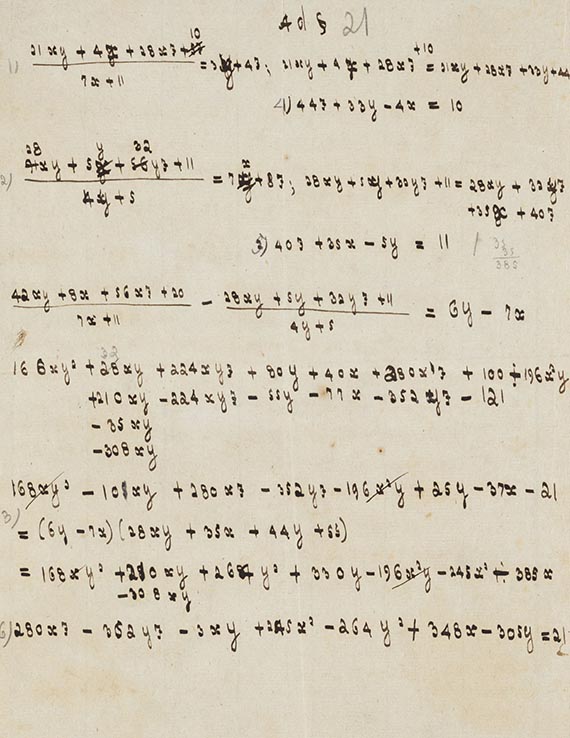 Ad § 21
10
1) 21xy + 4x + 28xz + / 7x + 11 = 3y + 4z; 21xy + 4x + 28xz +10 = 21xy + 28xz + 33y + 44
4) 44z + 33y - 4x = 10
28 y 32
2) xy + 5 + yz + 11 / 4y + 5 = 7x + 8z; 28xy + 5y + 32yz + 11 = 28xy + 32yz
+ 35x + 40z
5) 40z + 35x - 5y = 11
35
385
42xy + 8x + 56xz + 20 / 7x + 11 - 28xy + 5y + 32yz + 11 / 4y + 5 = 6y - 7x
32
168xy² + 28xy + 224xyz + 80y + 40x + 280xz + 100 + 196x²y
+210xy - 224xyz - 55y - 77x - 352yz - 121
- 35xy
- 308xy
168xy² - 10xy + 280xz - 352yz - 196x²y + 25y - 37x - 21
3) = (6y - 7x)(28xy + 35x + 44y + 55)
= 168xy² + 210xy + 264y² + 330y - 196x²y - 245x² + 385x
- 308xy
6) 280xz - 352yz - 3xy + 245x² - 264y² + 348x - 305y = 21